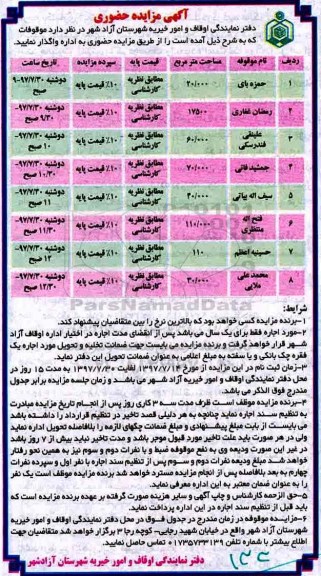 آگهی مزایده حضوری
دفتر نمایندگی اوقاف و امور خیریه شهرستان آزاد شهر در نظر دارد موقوفات
که به شرح ذیل آمده است را از طریق مزایده حضوری به اداره واگذار نمایید.
ردیف نام موقوفه مساحت متر مربع قیمت پایه سپرده مزایده تاریخ ساعت
۱ حمزه بای ۲۰/۰۰۰ مطابق نظریه کارشناسی ۱۰٪ قیمت پایه دوشنبه ۹۷/۷/۳۰-۹ صبح
۲ رمضان غفاری ۱۷۵۰۰ مطابق نظریه کارشناسی ۱۰٪ قیمت پایه دوشنبه ۹۷/۷/۳۰- ۹/۳۰ صبح
۳ علینقی فندرسکی ۶۰/۰۰۰ مطابق نظریه کارشناسی ۱۰٪ قیمت پایه دوشنبه ۹۷/۷/۳۰- ۱۰ صبح
۴ جمشید فانی ۷۰/۰۰۰ مطابق نظریه کارشناسی ۱۰٪ قیمت پایه دوشنبه ۹۷/۷/۳۰- ۱۰/۳۰ صبح
۵ سیف اله بیاتی ۴۰/۰۰۰ مطابق نظریه کارشناسی ۱۰٪ قیمت پایه دوشنبه ۹۷/۷/۳۰- ۱۱ صبح
۶ فتح اله منتظری ۱۱۰/۰۰۰ مطابق نظریه کارشناسی ۱۰٪ قیمت پایه دوشنبه ۹۷/۷/۳۰- ۱۱/۳۰ صبح
۷ حسینیه اعظم ۱۱۰ مطابق نظریه کارشناسی ۱۰٪ قیمت پایه دوشنبه ۹۷/۷/۳۰- ۱۲ صبح
۸ محمد علی ملایی ۳۰/۰۰۰ مطابق نظریه کارشناسی ۱۰٪ قیمت پایه دوشنبه ۹۷/۷/۳۰- ۱۲/۳۰ صبح
ParsNamadData
شرایط:
۱-برنده مزایده کسی خواهد بود که بالاترین نرخ را بین متقاضیان پیشنهاد کند.
۲-مورد اجاره فقط برای یک سال می باشد پس از انقضای مدت اجاره در اختیار اداره اوقاف آزاد
شهر قرار خواهد گرفت و برنده مزایده می بایست جهت ضمانت تخلیه و تحویل مورد اجاره یک
فقره چک بانکی و یا سفته به مبلغ اعلامی به عنوان ضمانت تحویل این دفتر نماید.
۳-زمان ثبت نام در این مزایده از مورخ ۱۳۹۷/۷/۱۴ لغایت ۱۳۹۷/۷/۳۰ به مدت ۱۵ روز در
محل دفتر نمایندگی اوقاف و امور خیریه آزاد شهر می باشد و زمان جلسه مزایده برابر جدول
مندرج فوق الذکر می باشد.
۴-برنده مزایده موقف است ظرف مدت سه ۳ کاری روز پس از انجام تاریخ مزایده مبادرت
به تنظیم سند اجاره نماید چنانچه به هر دلیلی قصد تاخیر در تنظیم قرارداد را داشته باشد
می بایست از بابت مبلغ پیشنهادی و مبلغ ضمانت چکهای لازمه را بلافاصله تحویل اداره نماید
ولی در هر صورت باید علت تاخیر مورد قبول موجر باشد و مدت تاخیر نباید بیش از ۷ روز باشد
در غیر این صورت ودیعه وی به نفع موقوفه ضبط و با نفرات دوم و سوم نیز به همین نحو رفتار
خواهد شد مبلغ ودیعه نفرات دوم و سوم پس از تنظیم سند اجاره با نفر اول و سپرده نفرات
چهارم به بعد بلافاصله پس از انجام مزایده مسترد خواهد شد برنده مزایده موقف است یک نفر
را به عنوان ضامن معتبر به این اداره معرفی نماید.
۵-حق الزحمه کارشناس و چاپ آگهی و سایر هزینه صورت گرفته بر عهده برنده مزایده است که
باید قبل از تنظیم سند اجاره در این اداره پرداخت نماید.
۶-مزایده موقوفه در زمان مندرج در جدول فوق در محل دفتر نمایندگی اوقاف و امور خیریه
شهرستان آزاد شهر واقع در خیابان شهید رجایی- کوچه رجا ۳ برگزار خواهد شد متقاضیان جهت
اطلاع بیشتر با شماره تلفن ۰۱۷۳۵۷۳۳۱۳۹ تماس حاصل نمایید.
دفتر نمایندگی اوقاف و امور خیریه شهرستان آزادشهر